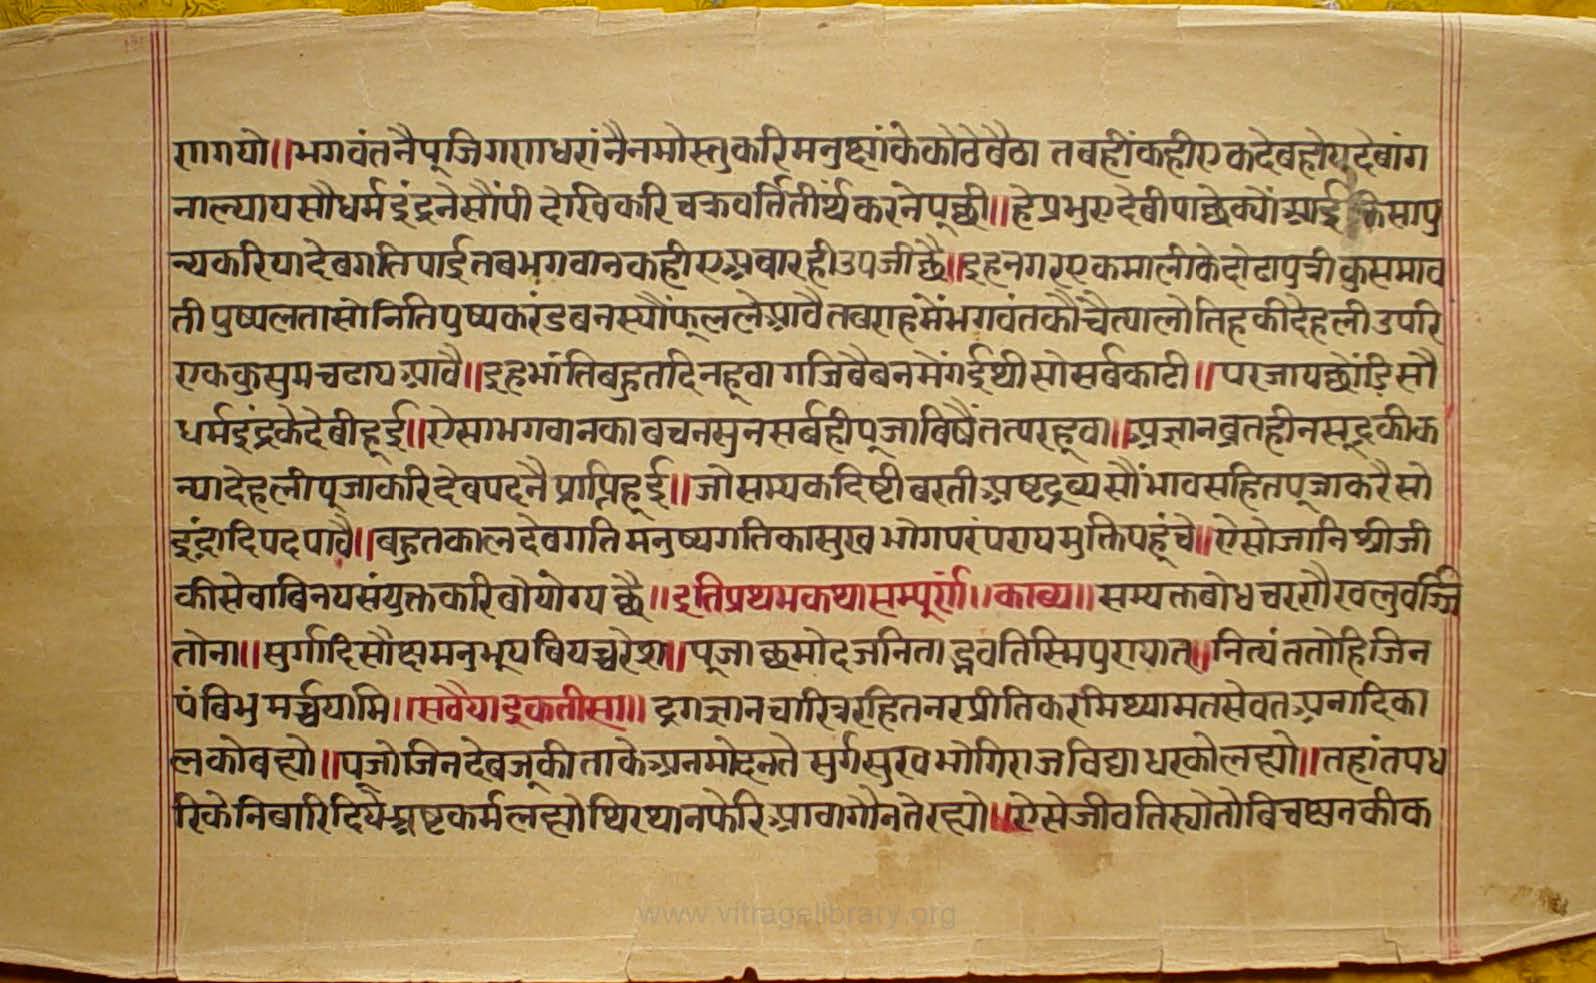 रणगयो॥ भगवंतनैपूजिगणधरांनैनमोस्तुकरिमनुष्यांकेकोठेबैठा तबहींकहीएकदेबहोयदेबांग
नाल्यायसौधर्मइंद्रनेसौंपी देखिकरि चक्रवर्तितीर्थकरनेपूछी॥ हेप्रभुएदेबीपाछेक्यौंआई किसापु
न्यकरियादेबगतिपाईतबभगवानकहीएअबारहीउपजीछै॥ इहनगरएकमालीकेदोटापुत्रीकुसमाव
तीपुष्पलतासोनितिपुष्पकरंडबनस्यौंफूललेआवैतबराहमेंभगवंतकौंचैत्यालोतिहकीदेहलीउपरि
एककुसुमचढायआवै॥ इहभांतिबहुतदिनहूवा गजिबैबनमेंगंईथीसोसर्वकाटी॥ परजायछोंड़िसौ
धर्मइंद्रकेदेबीहूई॥ ऐसाभगवानकाबचनसुनसर्बहीपूजाबिषैंतत्परहूवा॥ अज्ञानब्रतहीनसूद्रकीक
न्यादेहलीपूजाकरिदेवपदनैप्राप्तिहूई॥ जोसम्यकदिष्टीबरतीअष्टद्रव्यसौंभावसहितपूजाकरैसो
इंद्रादिपदपावै॥ बहुतकालदेवगतिमनुष्यगतिकासुखभोगपरंपरायमुक्तिपहूंचे॥ ऐसोजानिश्रीजी
कीसेवाबिनयसंयुक्तकरिवोयोग्य छै॥ इतिप्रथमकथासम्पूर्ण॥ काव्य॥ सम्यक्तबोधचरणैखलुवर्ज्जि
तोना॥ सुर्गादिसौख्यमनुभूयबियच्चरेशः॥ पूजाछमोदजनिताद्भवतिस्मिपुण्यात्॥ नित्यंततोहिजिन
पंविभुमर्च्चयामि॥ सवैयाइकतीसा॥ द्रगज्ञानचारित्ररहितनरप्रीतिकरमिथ्यामतसेवतअनादिका
लकोबह्यो॥ पूजोजिनदेबजूकीताकेअनमोदनते सुर्गसुखभोगिराजविद्याधरकोलह्यो॥ तहांतपध
रिकेनिबारिदियेअष्टकर्मलह्योथिरथानफेरिआवागौनतेरह्यो॥ ऐसेजीवतिस्योतोबिचष्यनकीक
www.vitragelibrary.org